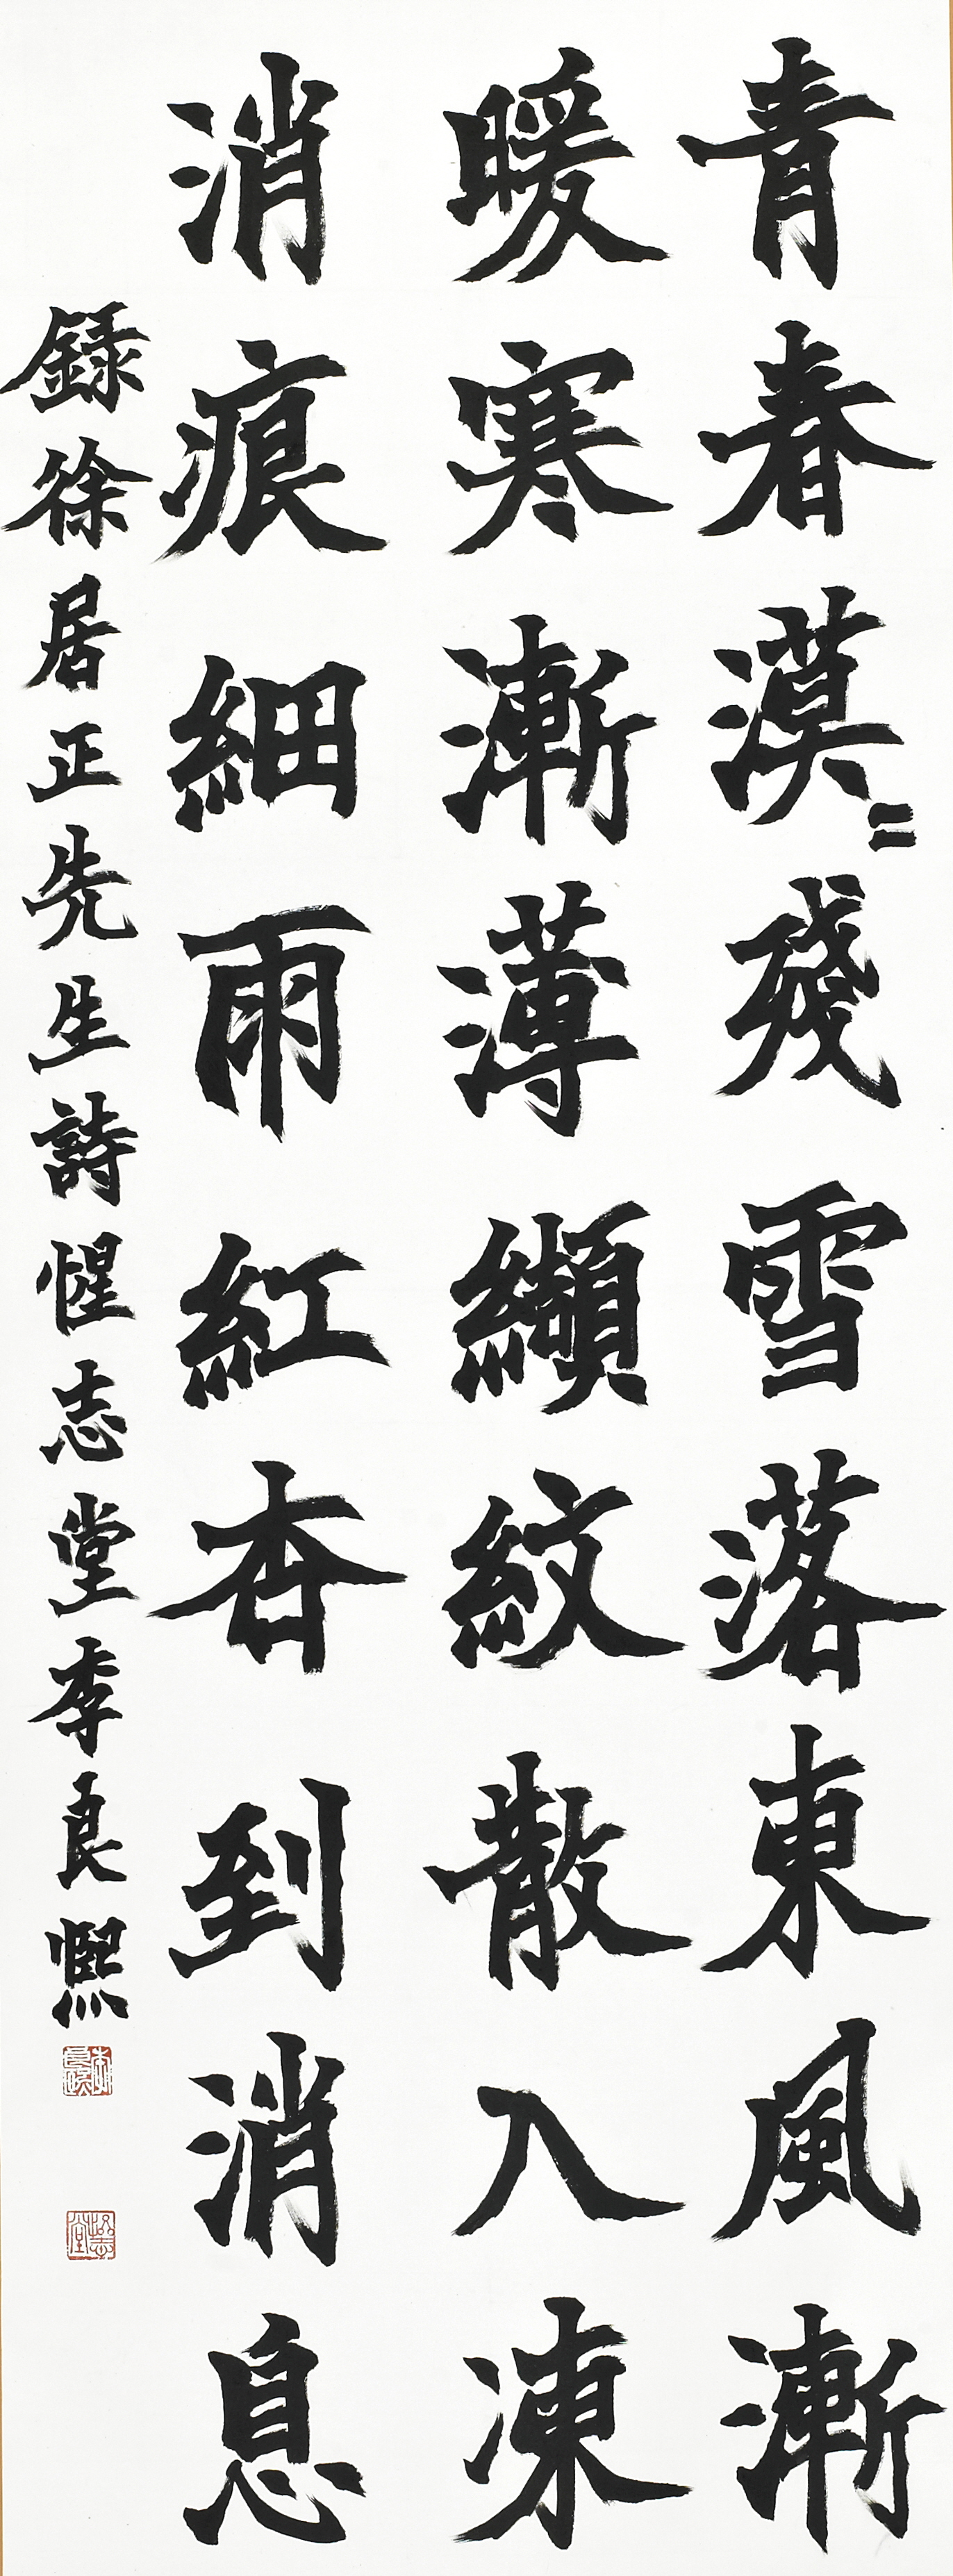 青春漠〻殘雪落東風漸
暖寒漸薄纈紋散入凍
消痕細雨紅杏到消息
錄徐居正先生詩惺志堂李良熙